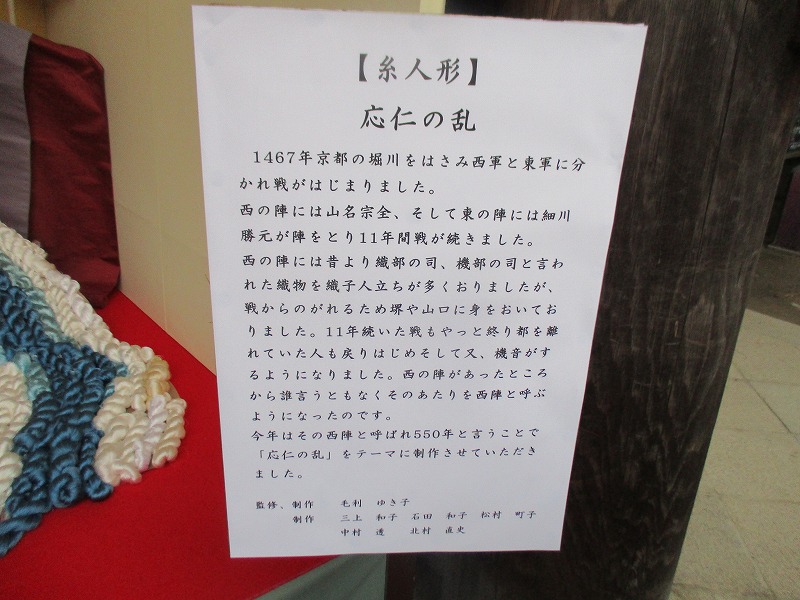 【糸人形】
応仁の乱
1467年京都の堀川をはさみ西軍と東軍に分
かれ戦がはじまりました。
西の陣には山名宗全、そして東の陣には細川
勝元が陣をとり11年間戦が続きました。
西の陣には昔より織部の司、機部の司と言わ
れた織物を織子人立ちが多くおりましたが、
戦からのがれるため堺や山口に身をおいてお
りました。11年続いた戦もやっと終り都を離
れていた人も戻りはじめそして又、機音がす
るようになりました。西の陣があったところ
から誰言うともなくそのあたりを西陣と呼ぶ
ようになったのです。
今年はその西陣と呼ばれ550年と言うことで
「応仁の乱」をテーマに制作させていただき
ました。
監修、制作 毛利 ゆき子
制作 三上 和子 石田 和子 松村 町子
中村 透 北村 直史